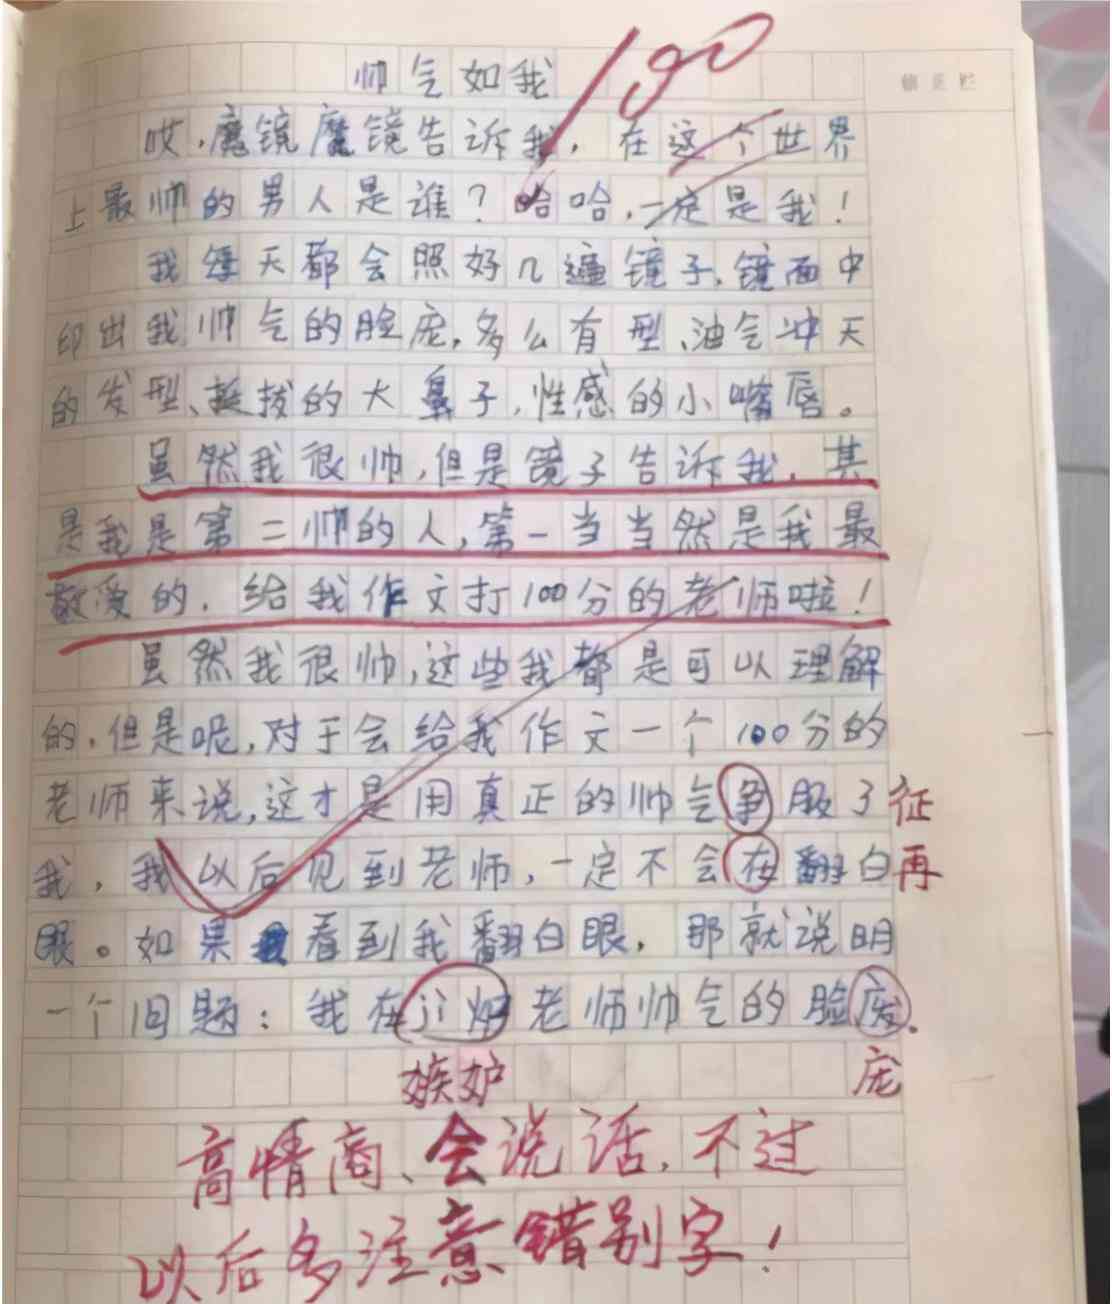 帅气如我
100
哎，魔镜魔镜告诉我，在这个世界
上最帅的男人是谁？哈哈，一定是我！
我每天都会照好几遍镜子，镜面中
印出我帅气的脸庞，多么有型、油气冲天
的发型、挺拔的大鼻子，性感的小嘴唇。
虽然我很帅，但是镜子告诉我，其
是我是第二帅的人，第一当当然是我最
敬爱的，给我作文打100分的老师啦！
虽然我很帅，这些我都是可以理解
的，但是呢，对于会给我作文一个100分的
老师来说，这才是用真正的帅气争服了 征
我，我以后见到老师，一定不会在翻白 再
眼。如果我看到我翻白眼，那就说明
一个问题：我在老师帅气的脸
嫉妒 庞
高情商、会说话，不过
以后多注意错别字！